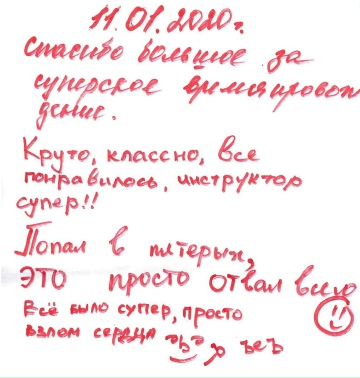 11.01.2020г.
Спасибо большое за
суперское времяпровож
дение.
Круто, классно, все
понравилось, инструктор
супер!!
Попал в пятерых,
ЭТО просто отвал всего
Всё было супер, просто
взлом сердца ъеъ